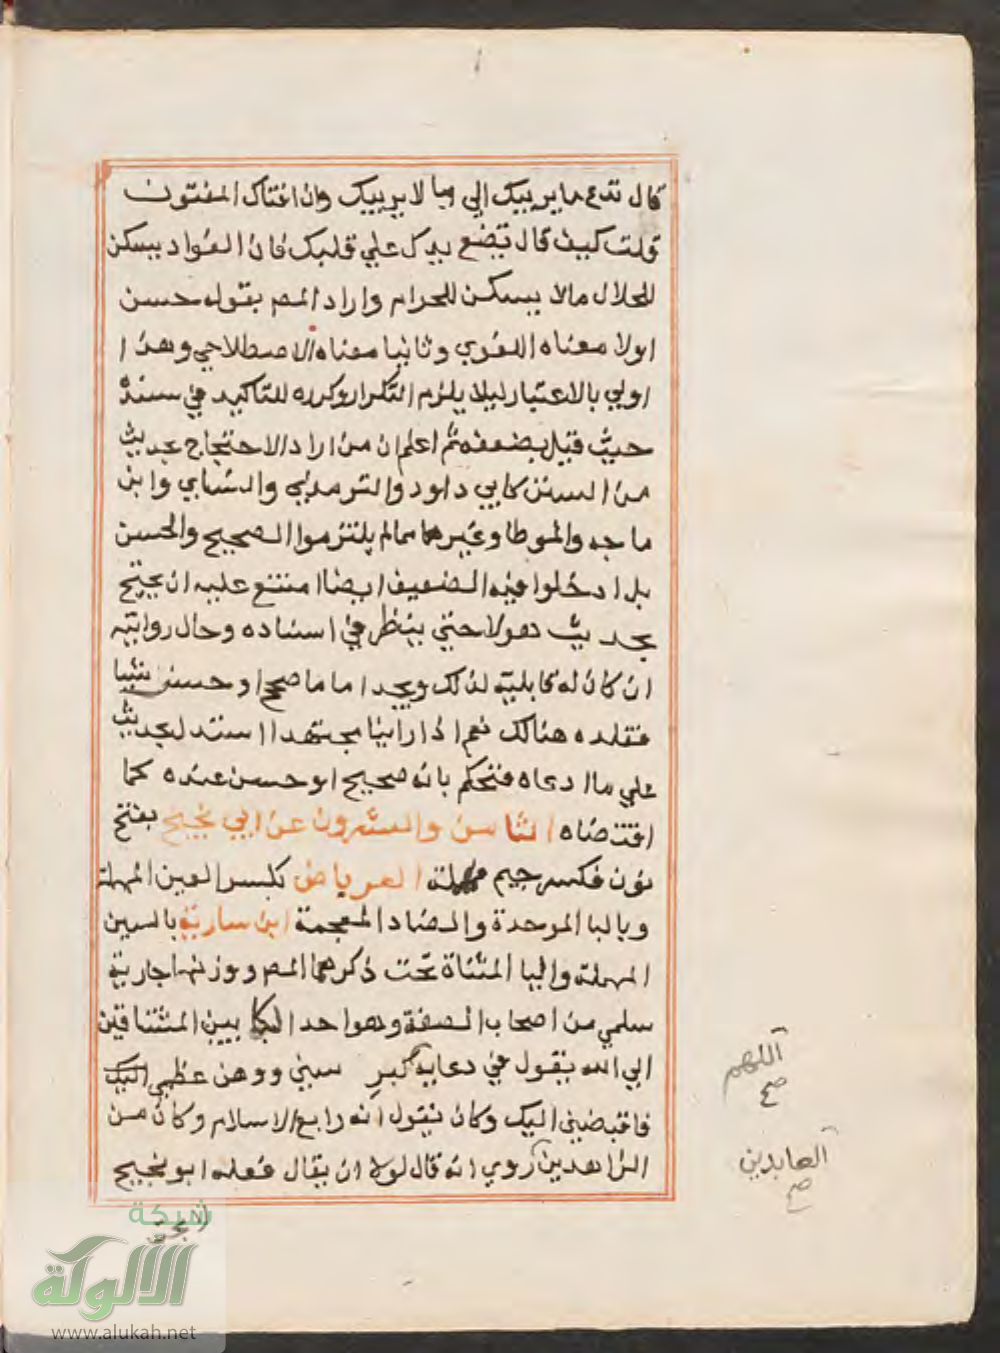 قال تدع ما يريبك الي ما لا يريبك وان افتاك المفتون
قلت كيف قال تضع يدك علي قلبك فان الفواد يسكن
للحلال مالا يسكن للحرام واراد المصم بقوله حسن
اولا معناه اللغوي وثانيا معناه الاصطلاحي وهذا
اولي بالاعتبار ليلا يلزم التكرار وكرره للتاكيد في سنده
حيث قيل بضعفه ثم اعلم ان من اراد الاحتجاج بحديث
من السنن كابي داود والترمذي والنساي وابن
ماجه والموطا وغيرهما مما لم يلتزموا الصحيح والحسن
بل ادخلوا فيه الضعيف ايضا امتنع عليه ان يحتج
بحديث هولا حتي ينظر في اسناده وحال رواته
ان كان له قابلية لذلك ويجد اماما صحح او حسن شيا
فقلده هنالك نعم اذا راينا مجتهدا استند لحديث
علي ما ادعاه فنحكم بانه صحيح او حسن عنده كما
اقتضاه الثامن والعشرون عن ابي نجيح بفتح
نون فكسر جيم مهملة العرباض بكسر العين المهملة
وبالبا الموحدة والضاد المعجمة ابن سارية بالسين
المهملة واليا المثناة تحت ذكرهما المصم ووزنها جارية
سلمي من اصحاب الصفة وهو احد البكايين المشتاقين
الي الله يقول في دعايه كبر سني ووهن عظمي اليك
فاقبضني اليك وكان يقول انه رابع الاسلام وكان من
الزاهدين روي انه قال لولا ان يقال فعله ابو نجيح
اللهم
صح
العابدين
صح
شبكة
الألوكة
www.alukah.net